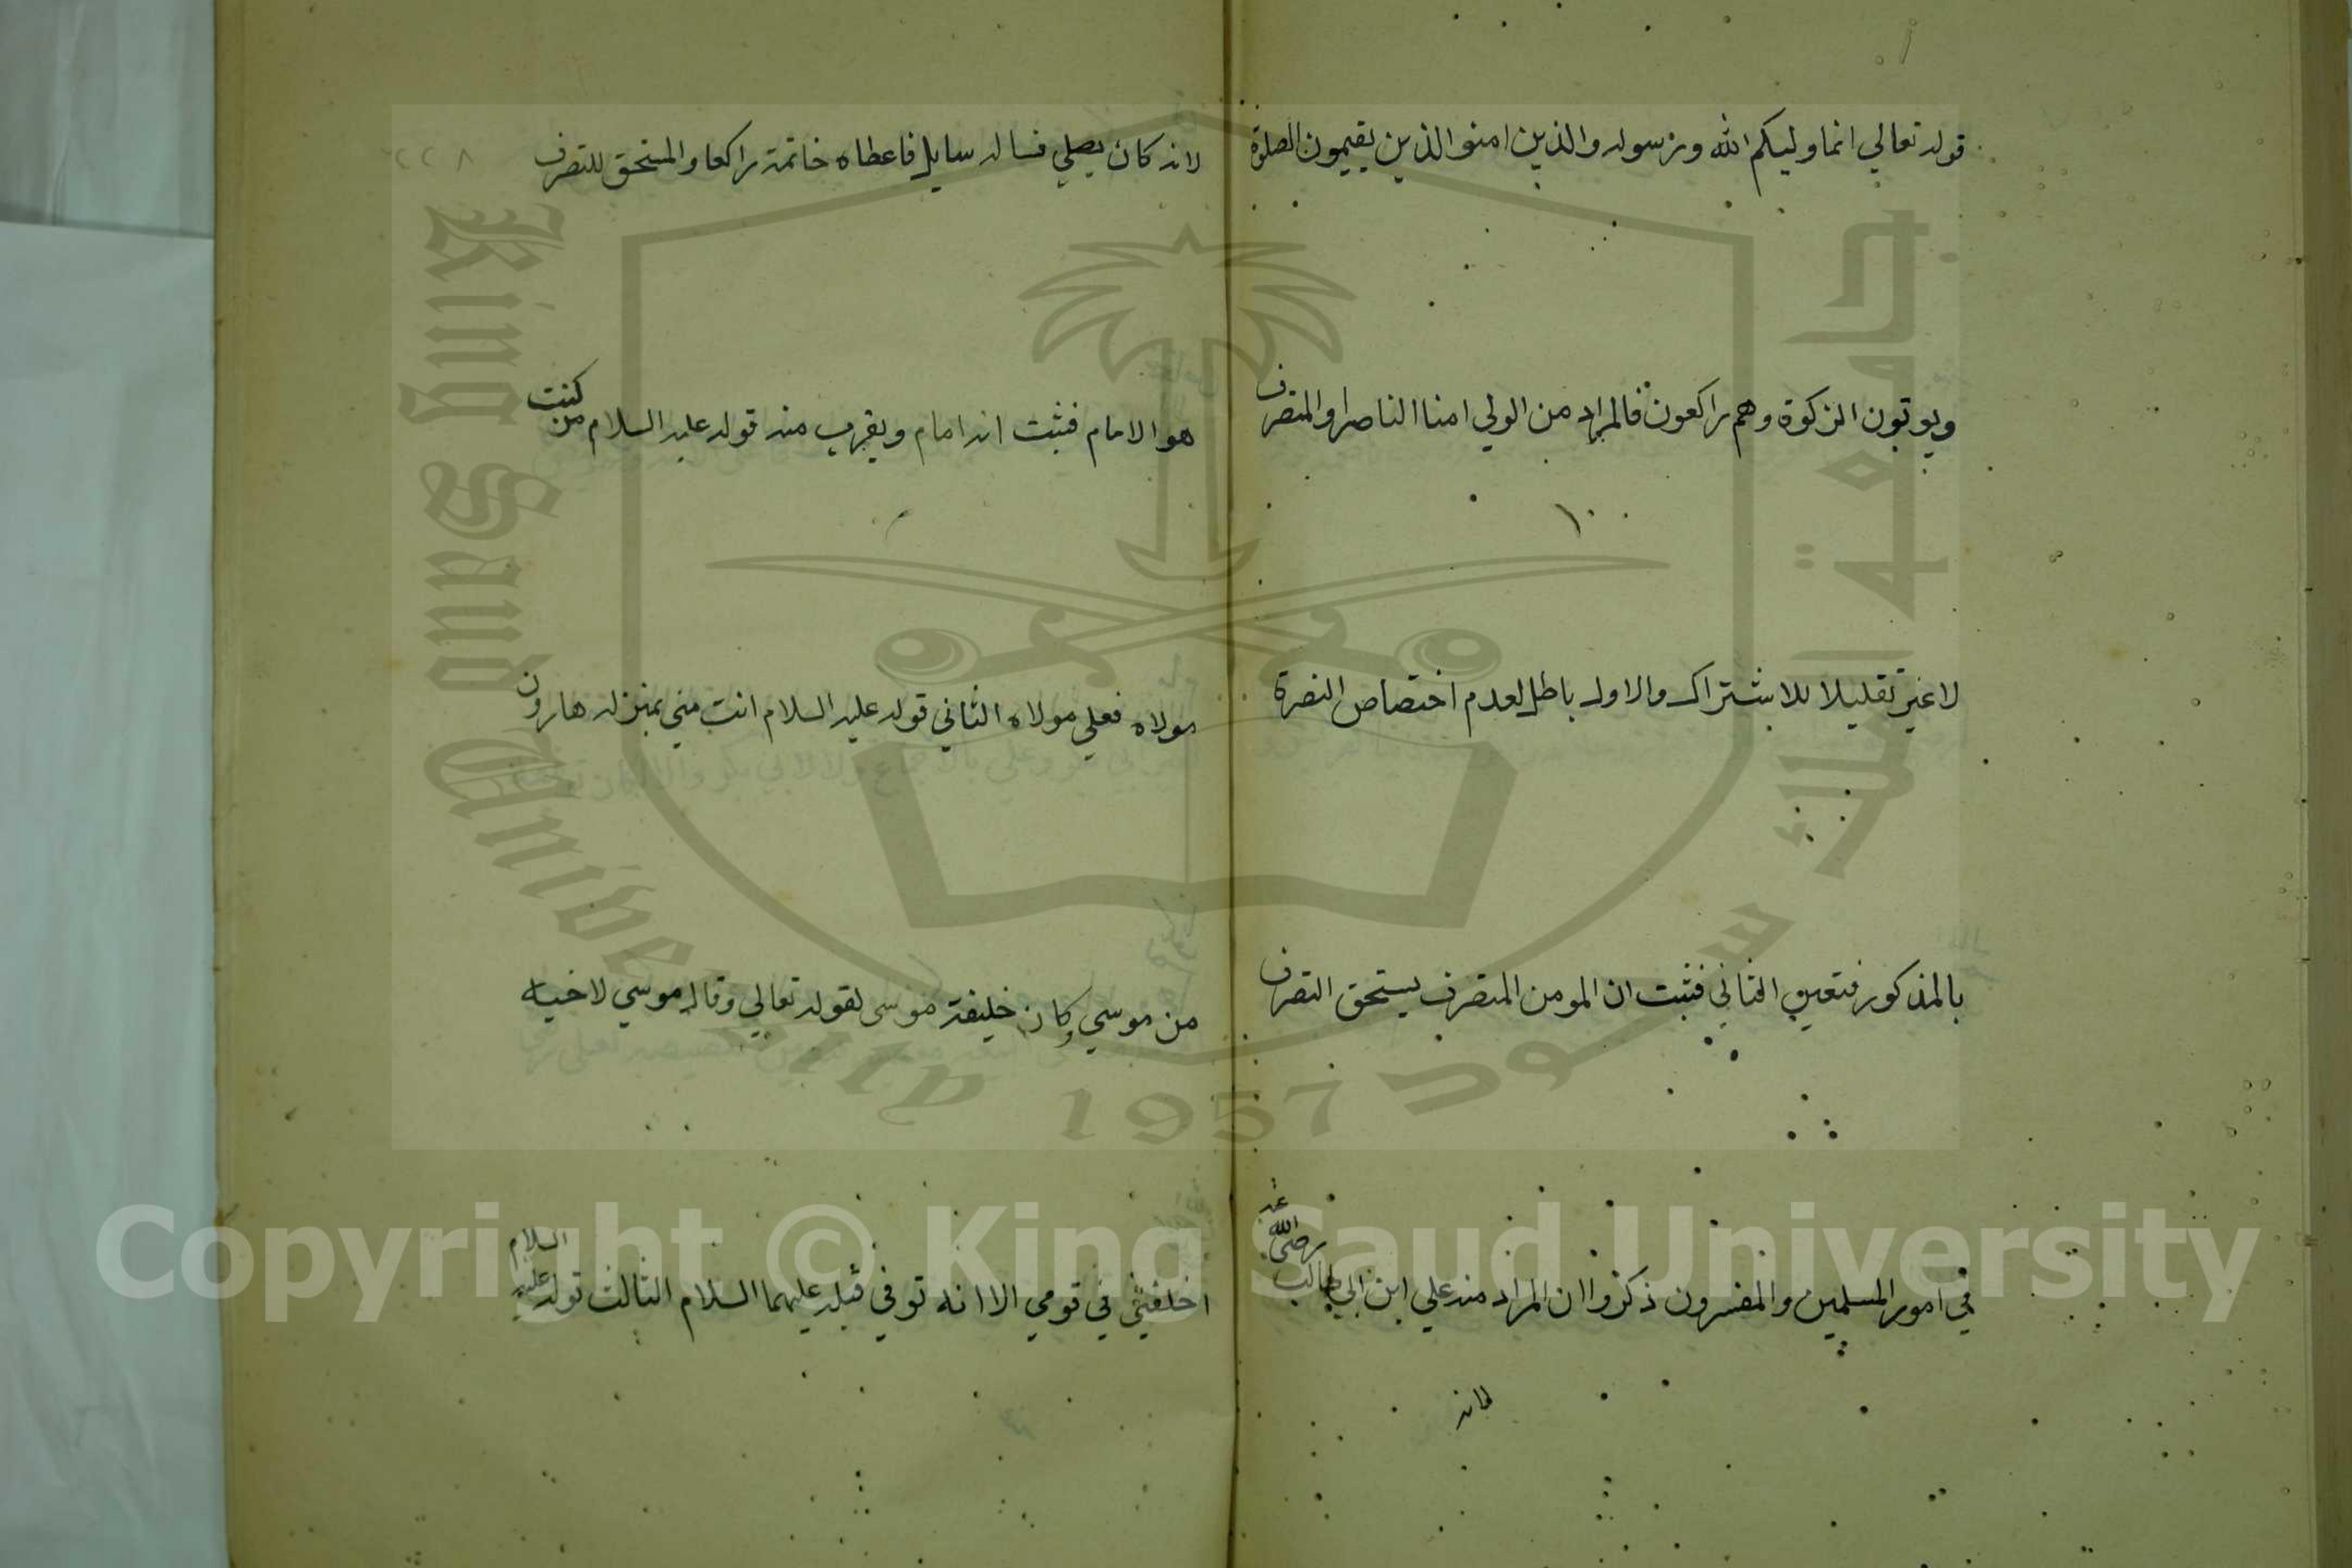 قوله تعالي انما وليكم الله ورسوله والذين امنو الذين يقيمون الصلوة
ويوتون الزكوة وهم راكعون فالمراد من الولي امنا الناصر او المتصرف
لا غير تقليلا للاشتراك والاول باطل لعدم اختصاص النصرة
بالمذكور فتعين الثاني فثبت ان المومن المتصرف يستحق التصرف
في امور المسلمين والمفسرون ذكروا ان المراد منه علي ابن ابي طالب رضي الله عنه
لانه
لانه كان يصلي فساله سايل فاعطاه خاتمه راكعا والمستحق للتصرف
هو الامام فثبت انه امام ويقرب منه قوله عليه السلام من كنت
مولاه فعلي مولاه الثاني قوله عليه السلام انت مني بمنزله هارون
من موسي وكان خليفة موسى لقوله تعالي وقال موسي لاخيه
اخلفني في قومي الا انه توفي قبله عليهما السلام الثالث قوله عليه السلام
٢٢٨
King Saud University 1957
جامعة الملك سعود
Copyright © King Saud University